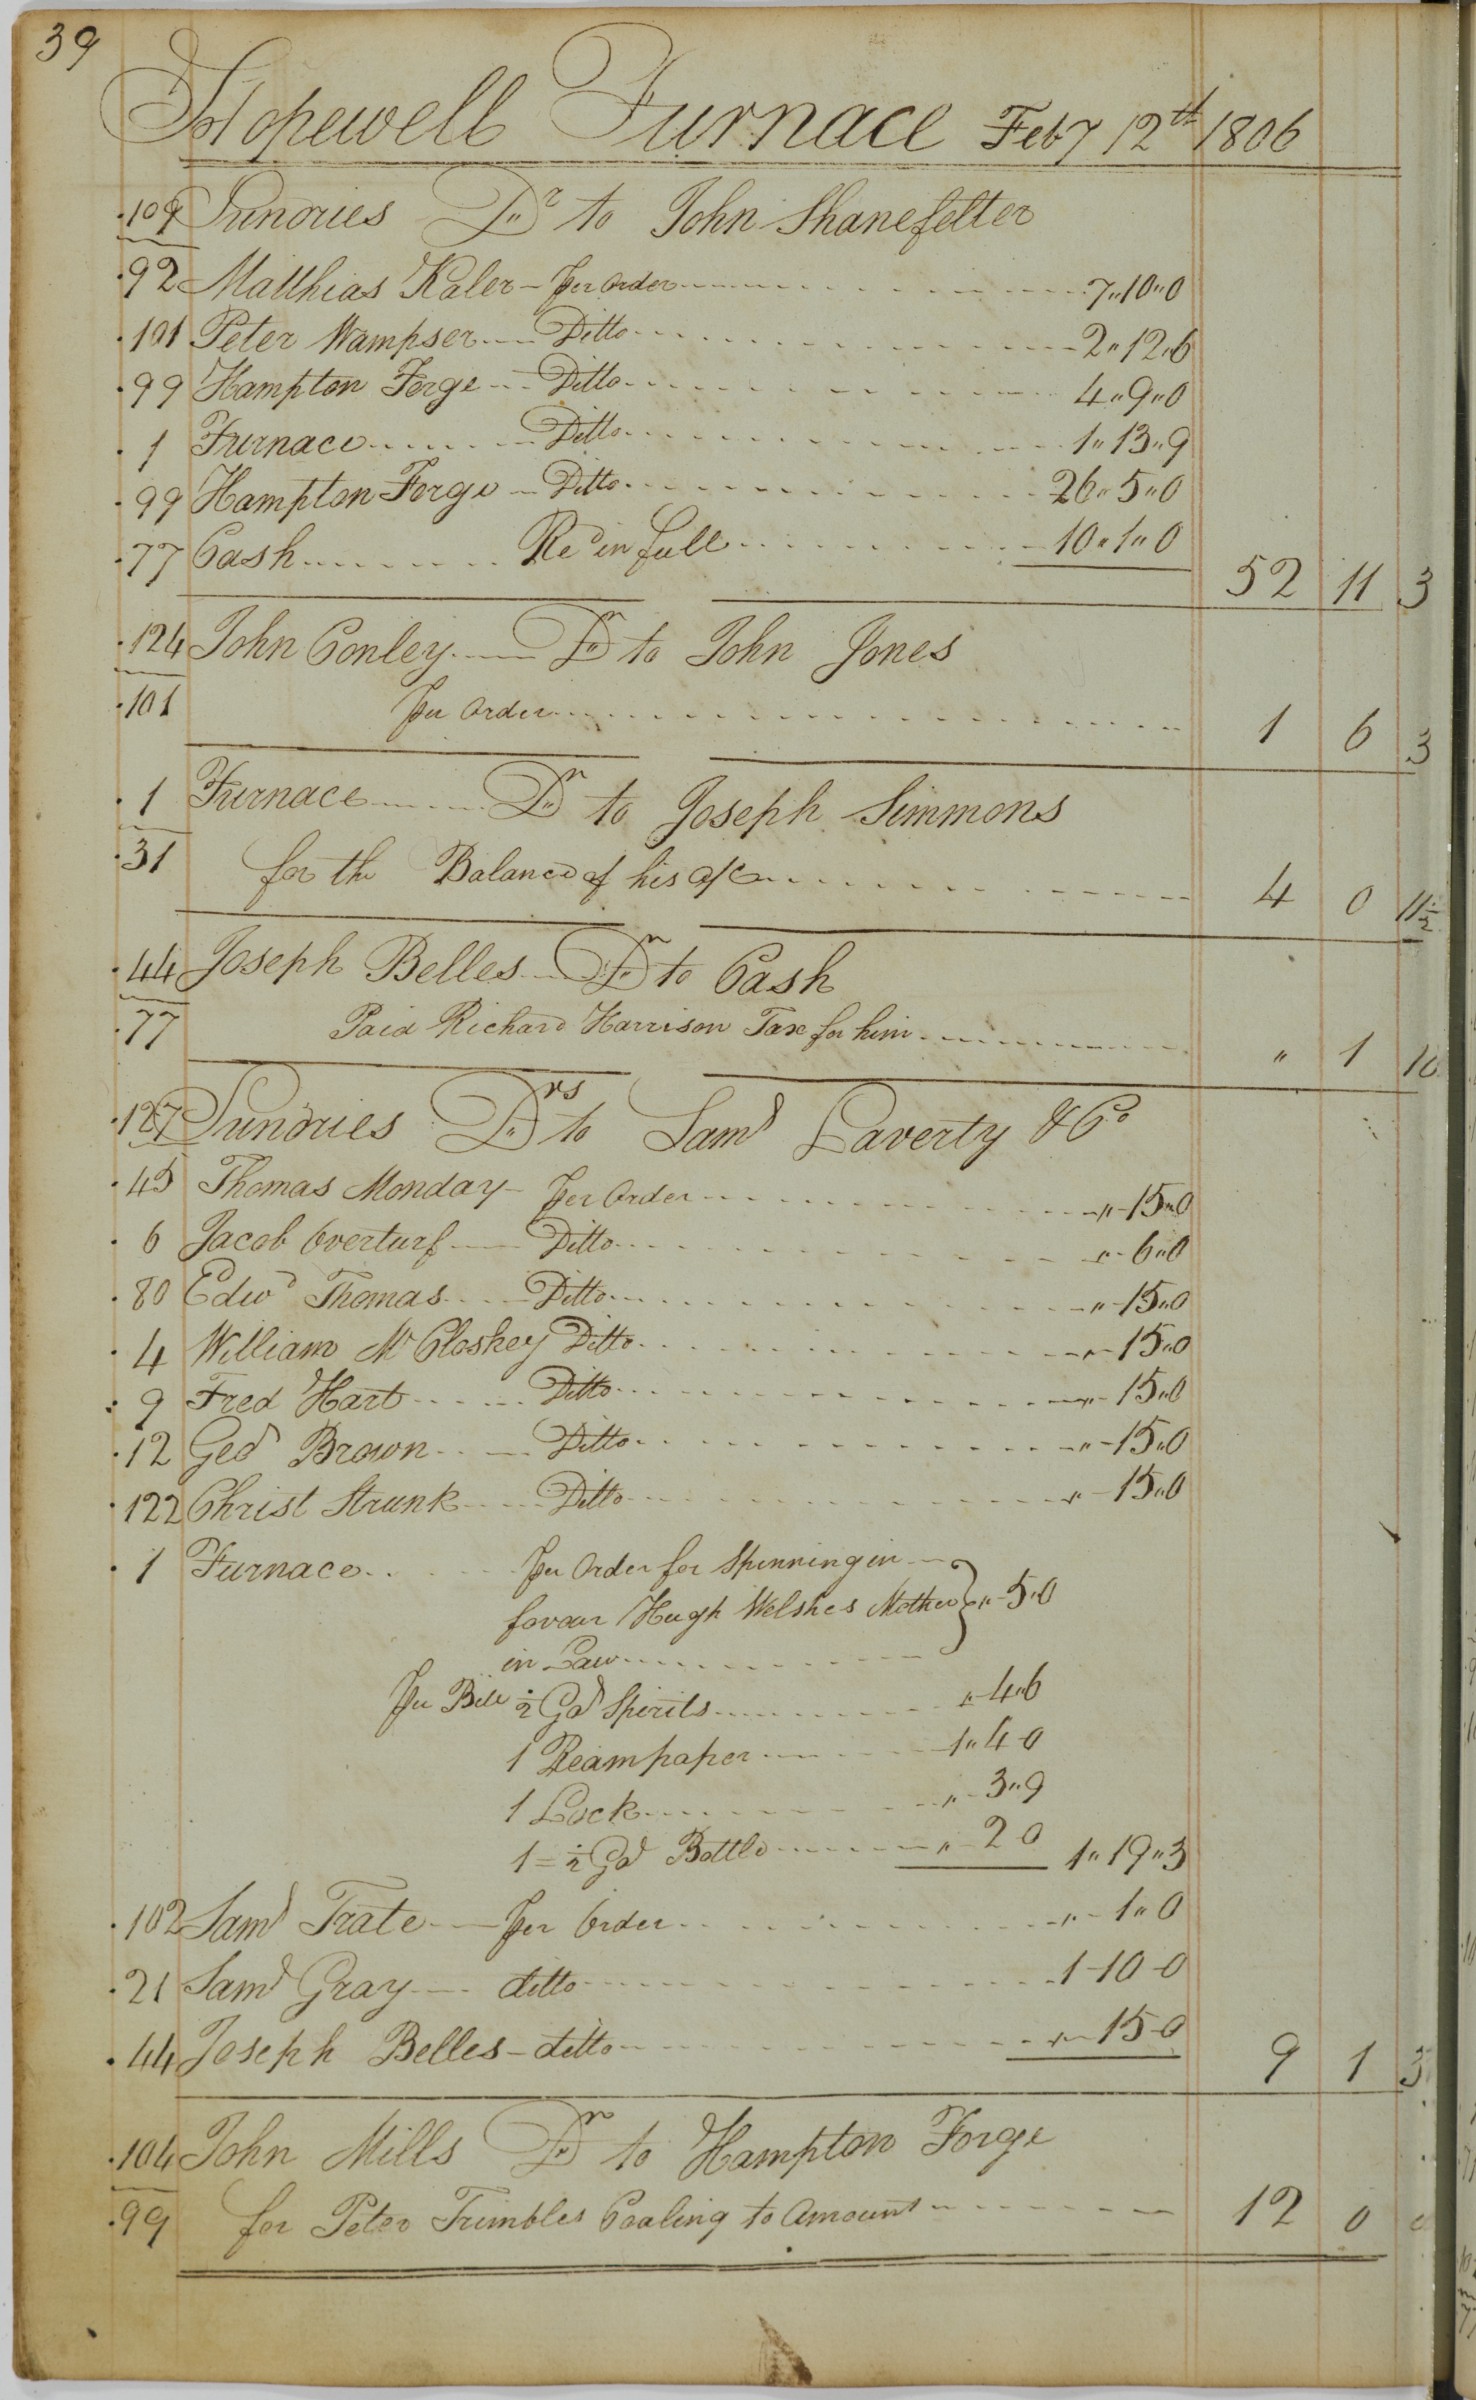 39
Hopewell Furnace Feby 12th 1806
109 Sundries Dr to John Shanefelter
92 Matthias Kaler - Per Order 7"10"0
101 Peter Wampser Ditto 2"12"6
99 Hampton Forge Ditto 4"9"0
1 Furnace Ditto 1"13"9
99 Hampton Forge Ditto 26"5"0
77 Cash Recd in full 10"1"0
52 11 3
124 John Conley Dr to John Jones
101 Per Order 1 6 3
1 Furnace Dr to Joseph Simmons
31 for the Balance of his a/c 4 0 11½
44 Joseph Belles Dr to Cash
77 Paid Richard Harrison Tax for him " 1 10
127 Sundries Drs to Saml Laverty & Co
45 Thomas Monday - Per Order "-15"0
6 Jacob Overturf Ditto "-6"0
80 Edwd Thomas Ditto "-15"0
4 William McCloskey Ditto "-15"0
9 Fred Hart Ditto "-15"0
12 Geo Brown Ditto "-15"0
122 Christ Strunk Ditto "-15"0
1 Furnace Per Order for Spinning in
favour Hugh Welshes Mother } "-5"0
in Law
Per Bill ½ Gal Spirits "-4"6
1 Ream paper 1"4-0
1 Lock "-3"9
1=½ Gal Bottle "-2-0 1"19"3
102 Saml Trate Per Order "-1"0
21 Saml Gray ditto 1-10-0
44 Joseph Belles - ditto "-15-0
9 1 3
104 John Mills Dr to Hampton Forge
99 for Peter Trimbles Coaling to Amount 12 0 0